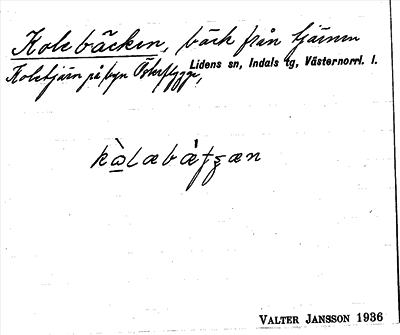 Kolebäcken, bäck från tjärnen
Koletjärn på byn Österflygge,
Lidens sn, Indals tg, Västernorrl. l.
kòlæbákʃæn
VALTER JANSSON 1936